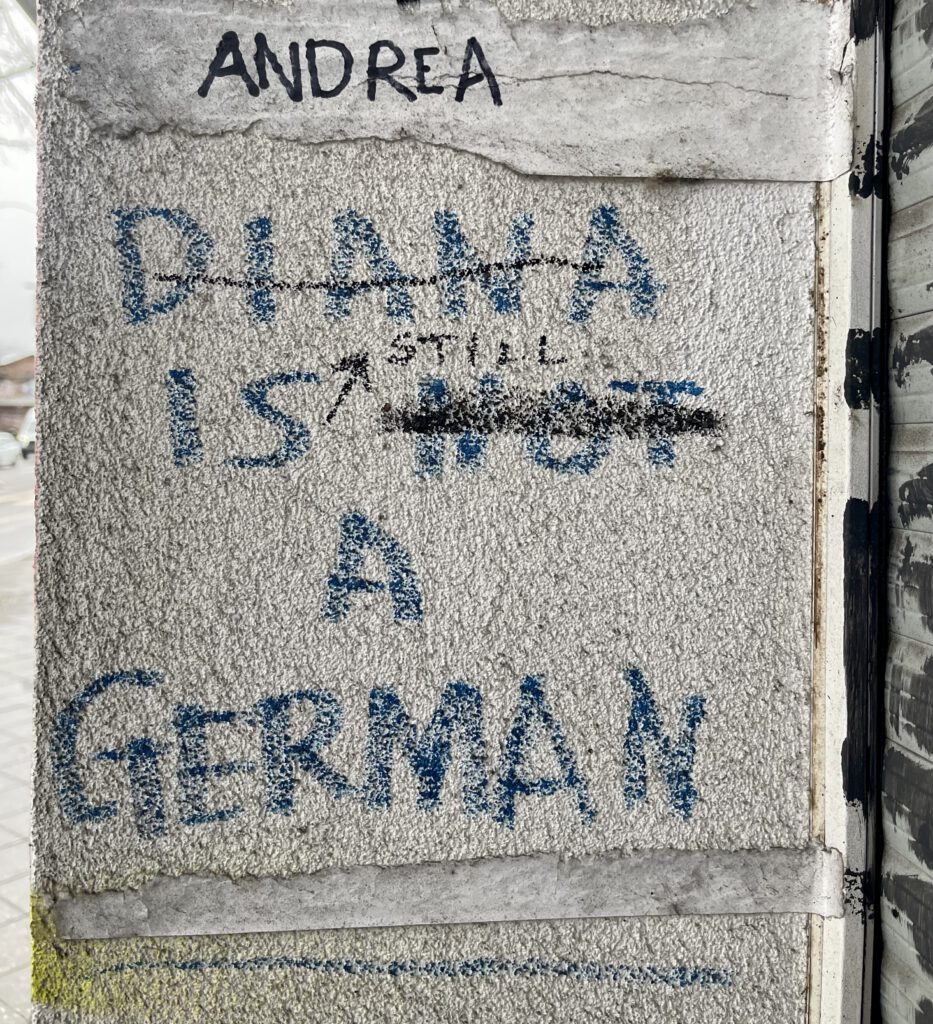 ANDREA
DIANA
STILL
IS NOT
A
GERMAN